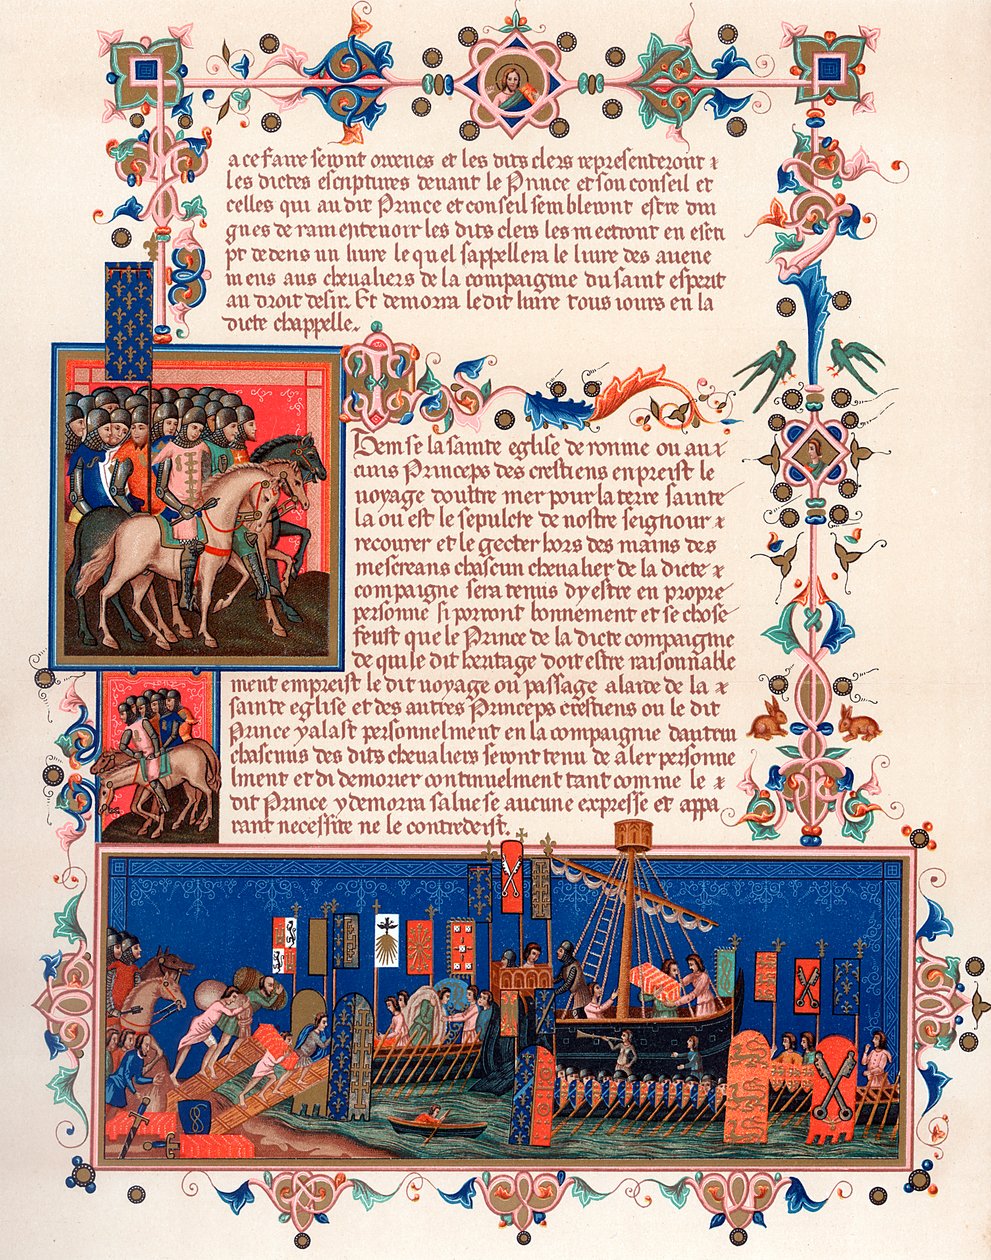 a ce faire seront ordenes et les dits clers representeront z
les dictes escriptures devant le Prince et son conseil et
celles qui au dit Prince et conseil sembleront estre din
gnes de ramentenoir les dits clers les mectront en escri
pt dedens un livre le quel sappellera le livre des avene
mens aus chevaliers de la compaignie du saint esperit
au droit desir. Et demorra le dit livre tous iours en la
dicte chappelle.
Item se la sainte eglise de romme ou au
cuns Princeps des crestiens enpreist le
voyage doultre mer pour la terre sainte
la ou est le sepulcre de nostre seignour z
recovrer et le gecter hors des mains des
mescreans chascun chevalier de la dicte z
compaigne sera tenus dy estre en propre
personne si porront bonnement et se chose
feust que le Prince de la dicte compaigme
de qui le dit heritage doit estre raisonnable
ment empreist le dit voyage ou passage a laide de la z
sainte eglise et des autres Princeps crestiens ou le dit
Prince y alast personnelment en la compaignie dautrui
chascuns des dits chevaliers seront tenu de aler personne
lment et di demorer continuelment tant comme le z
dit Prince y demorra salve se aucune expresse et appa
rant necessite ne le contredeist.